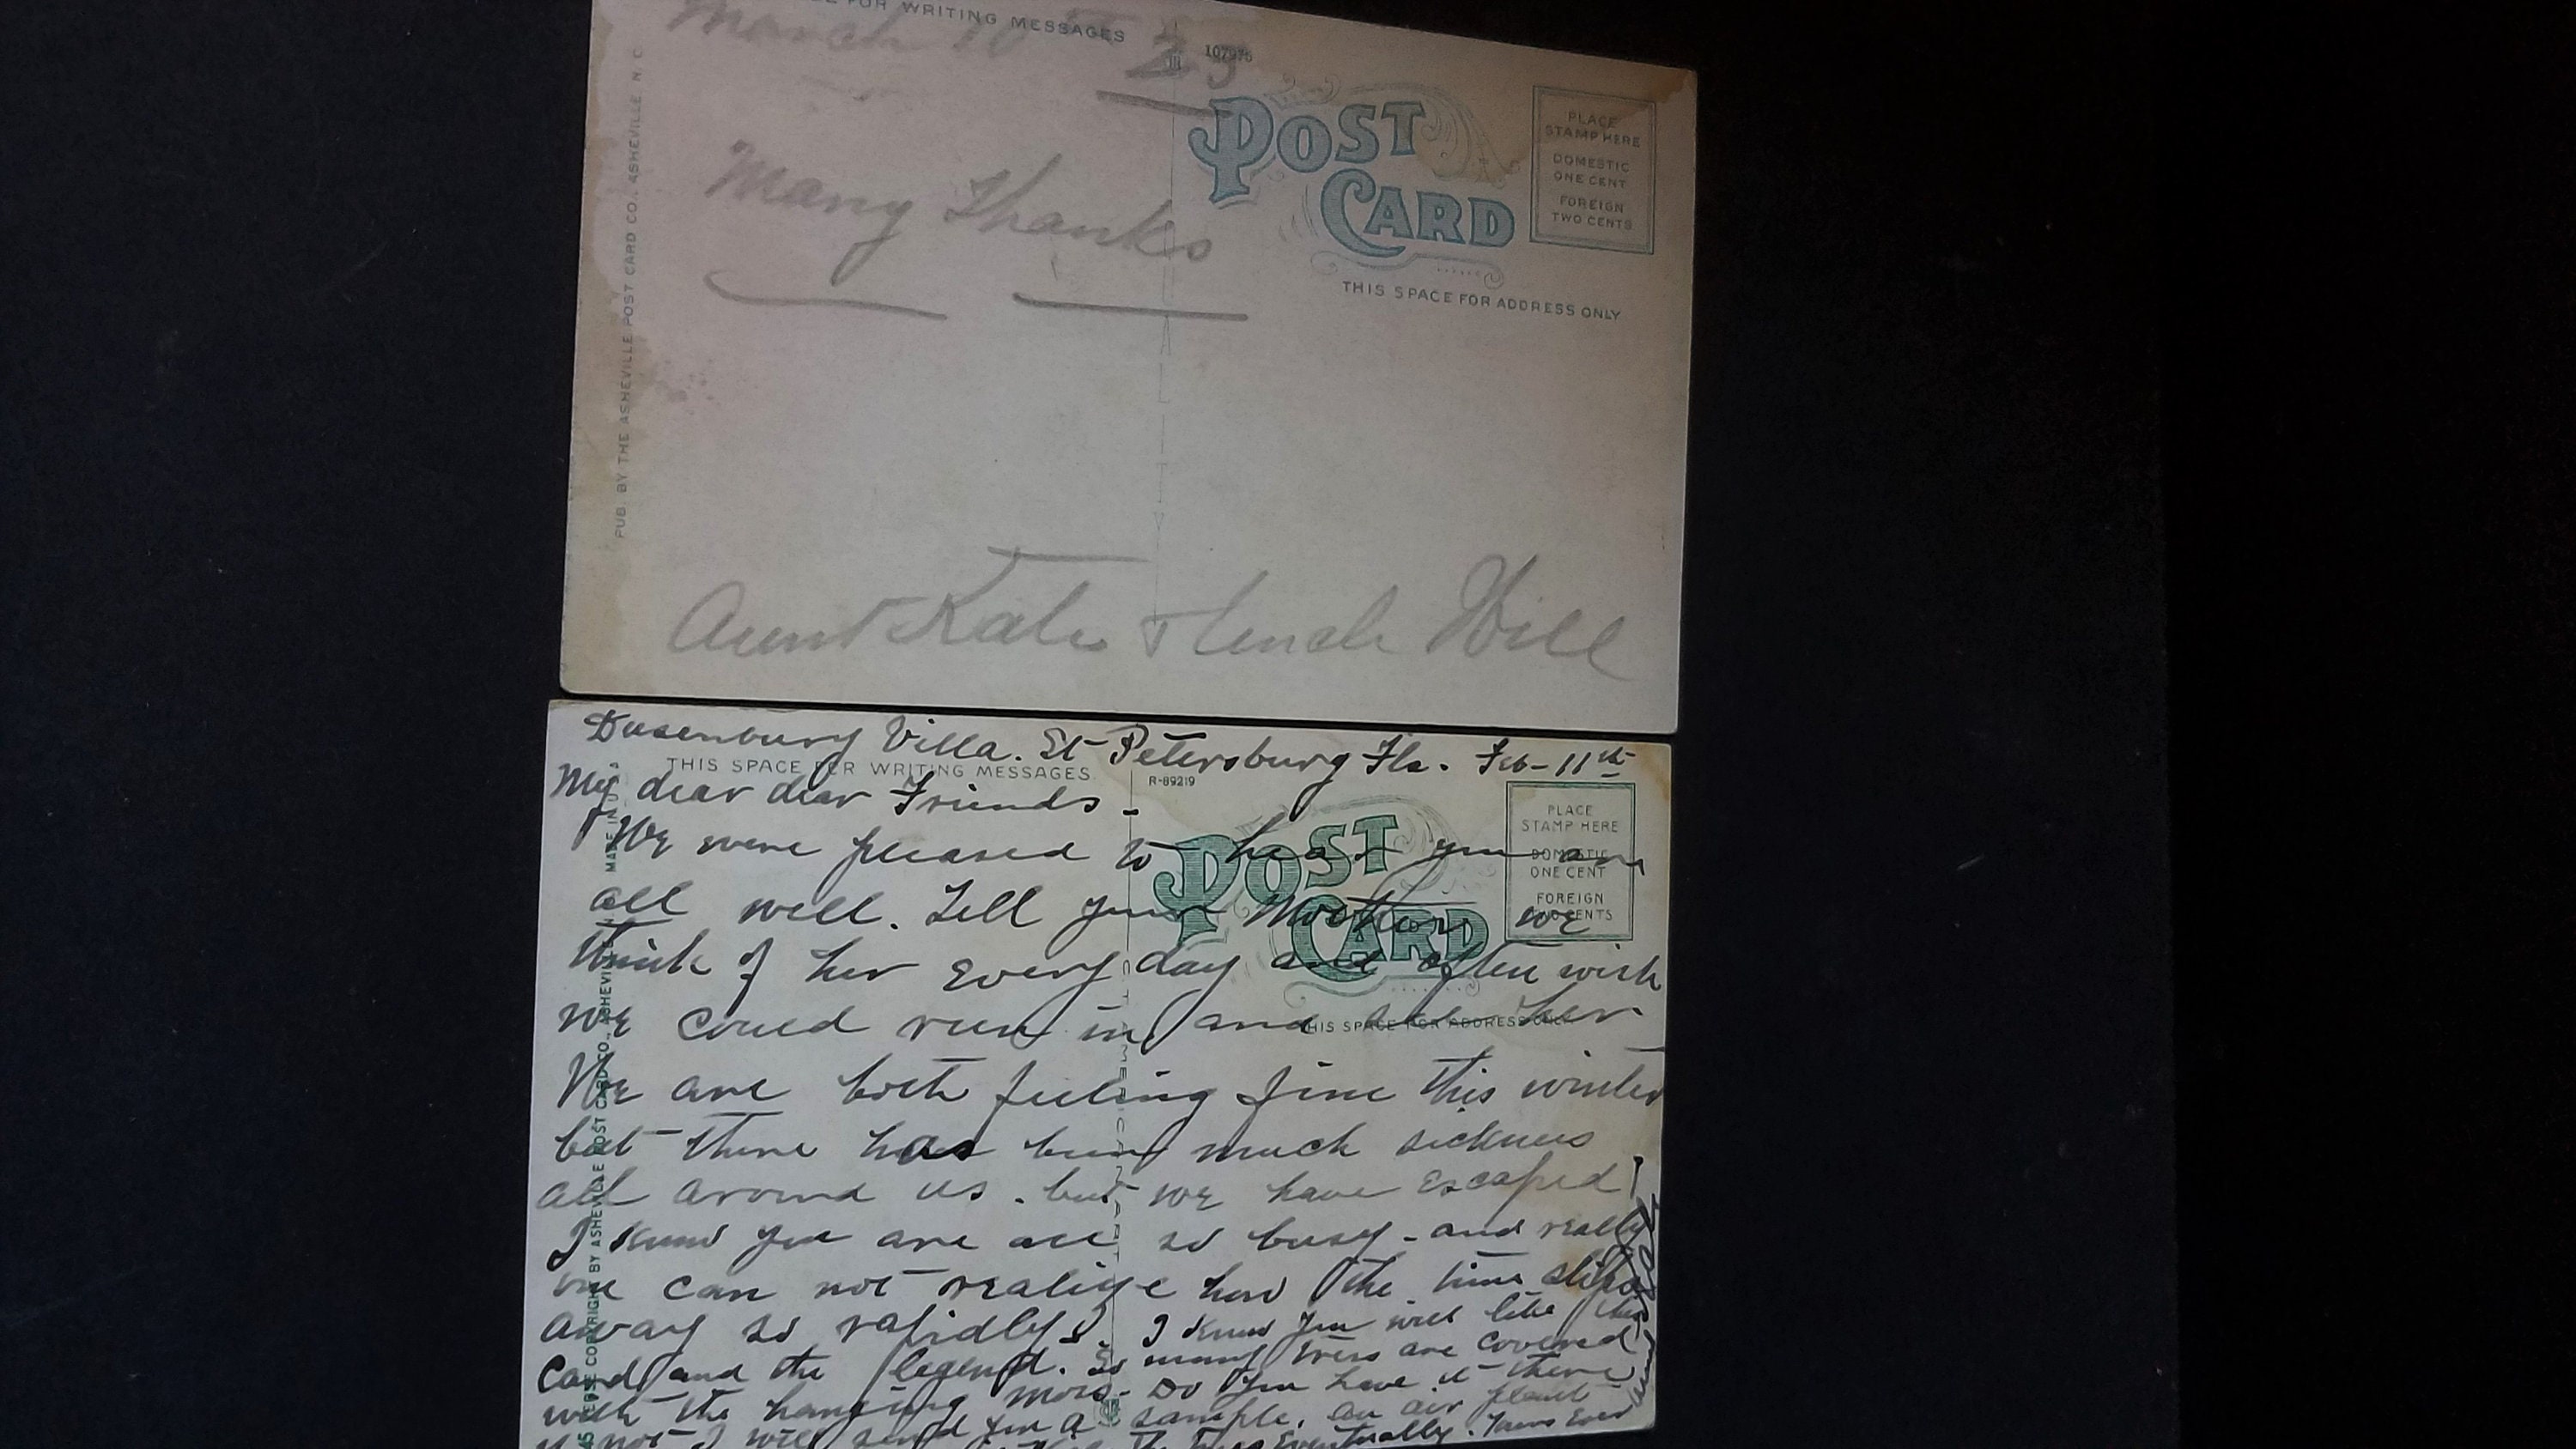 FOR WRITING MESSAGES
March 10 23
107976
POST CARD
PLACE
STAMP HERE
DOMESTIC
ONE CENT
FOREIGN
TWO CENTS
THIS SPACE FOR ADDRESS ONLY
PUB. BY THE ASHEVILLE POST CARD CO. ASHEVILLE N. C.
Many Thanks
Aunt Kate & Uncle Will
Dusenbury Villa. St Petersburg Fla. Feb-11th
THIS SPACE FOR WRITING MESSAGES
R-89219
My dear dear Friends-
POST CARD
PLACE
STAMP HERE
DOMESTIC
ONE CENT
FOREIGN
TWO CENTS
THIS SPACE FOR ADDRESS ONLY
We were pleased to hear you are
all well. Tell your Mother we
think of her every day and often wish
we could run in and see her
We are both feeling fine this winter
but there has been much sickness
all around us. but we have escaped!
I know you are all so busy - and really
one can not realize how the time slips
away so rapidly. I know you will like this
Card and the legend. So many trees are covered
with the hanging moss. Do you have it there
if not I will send you a sample. an air plant
the trees eventually. Yours Ever
COPYRIGHT BY ASHEVILLE POST CARD CO., ASHEVILLE
MADE IN U.S.A